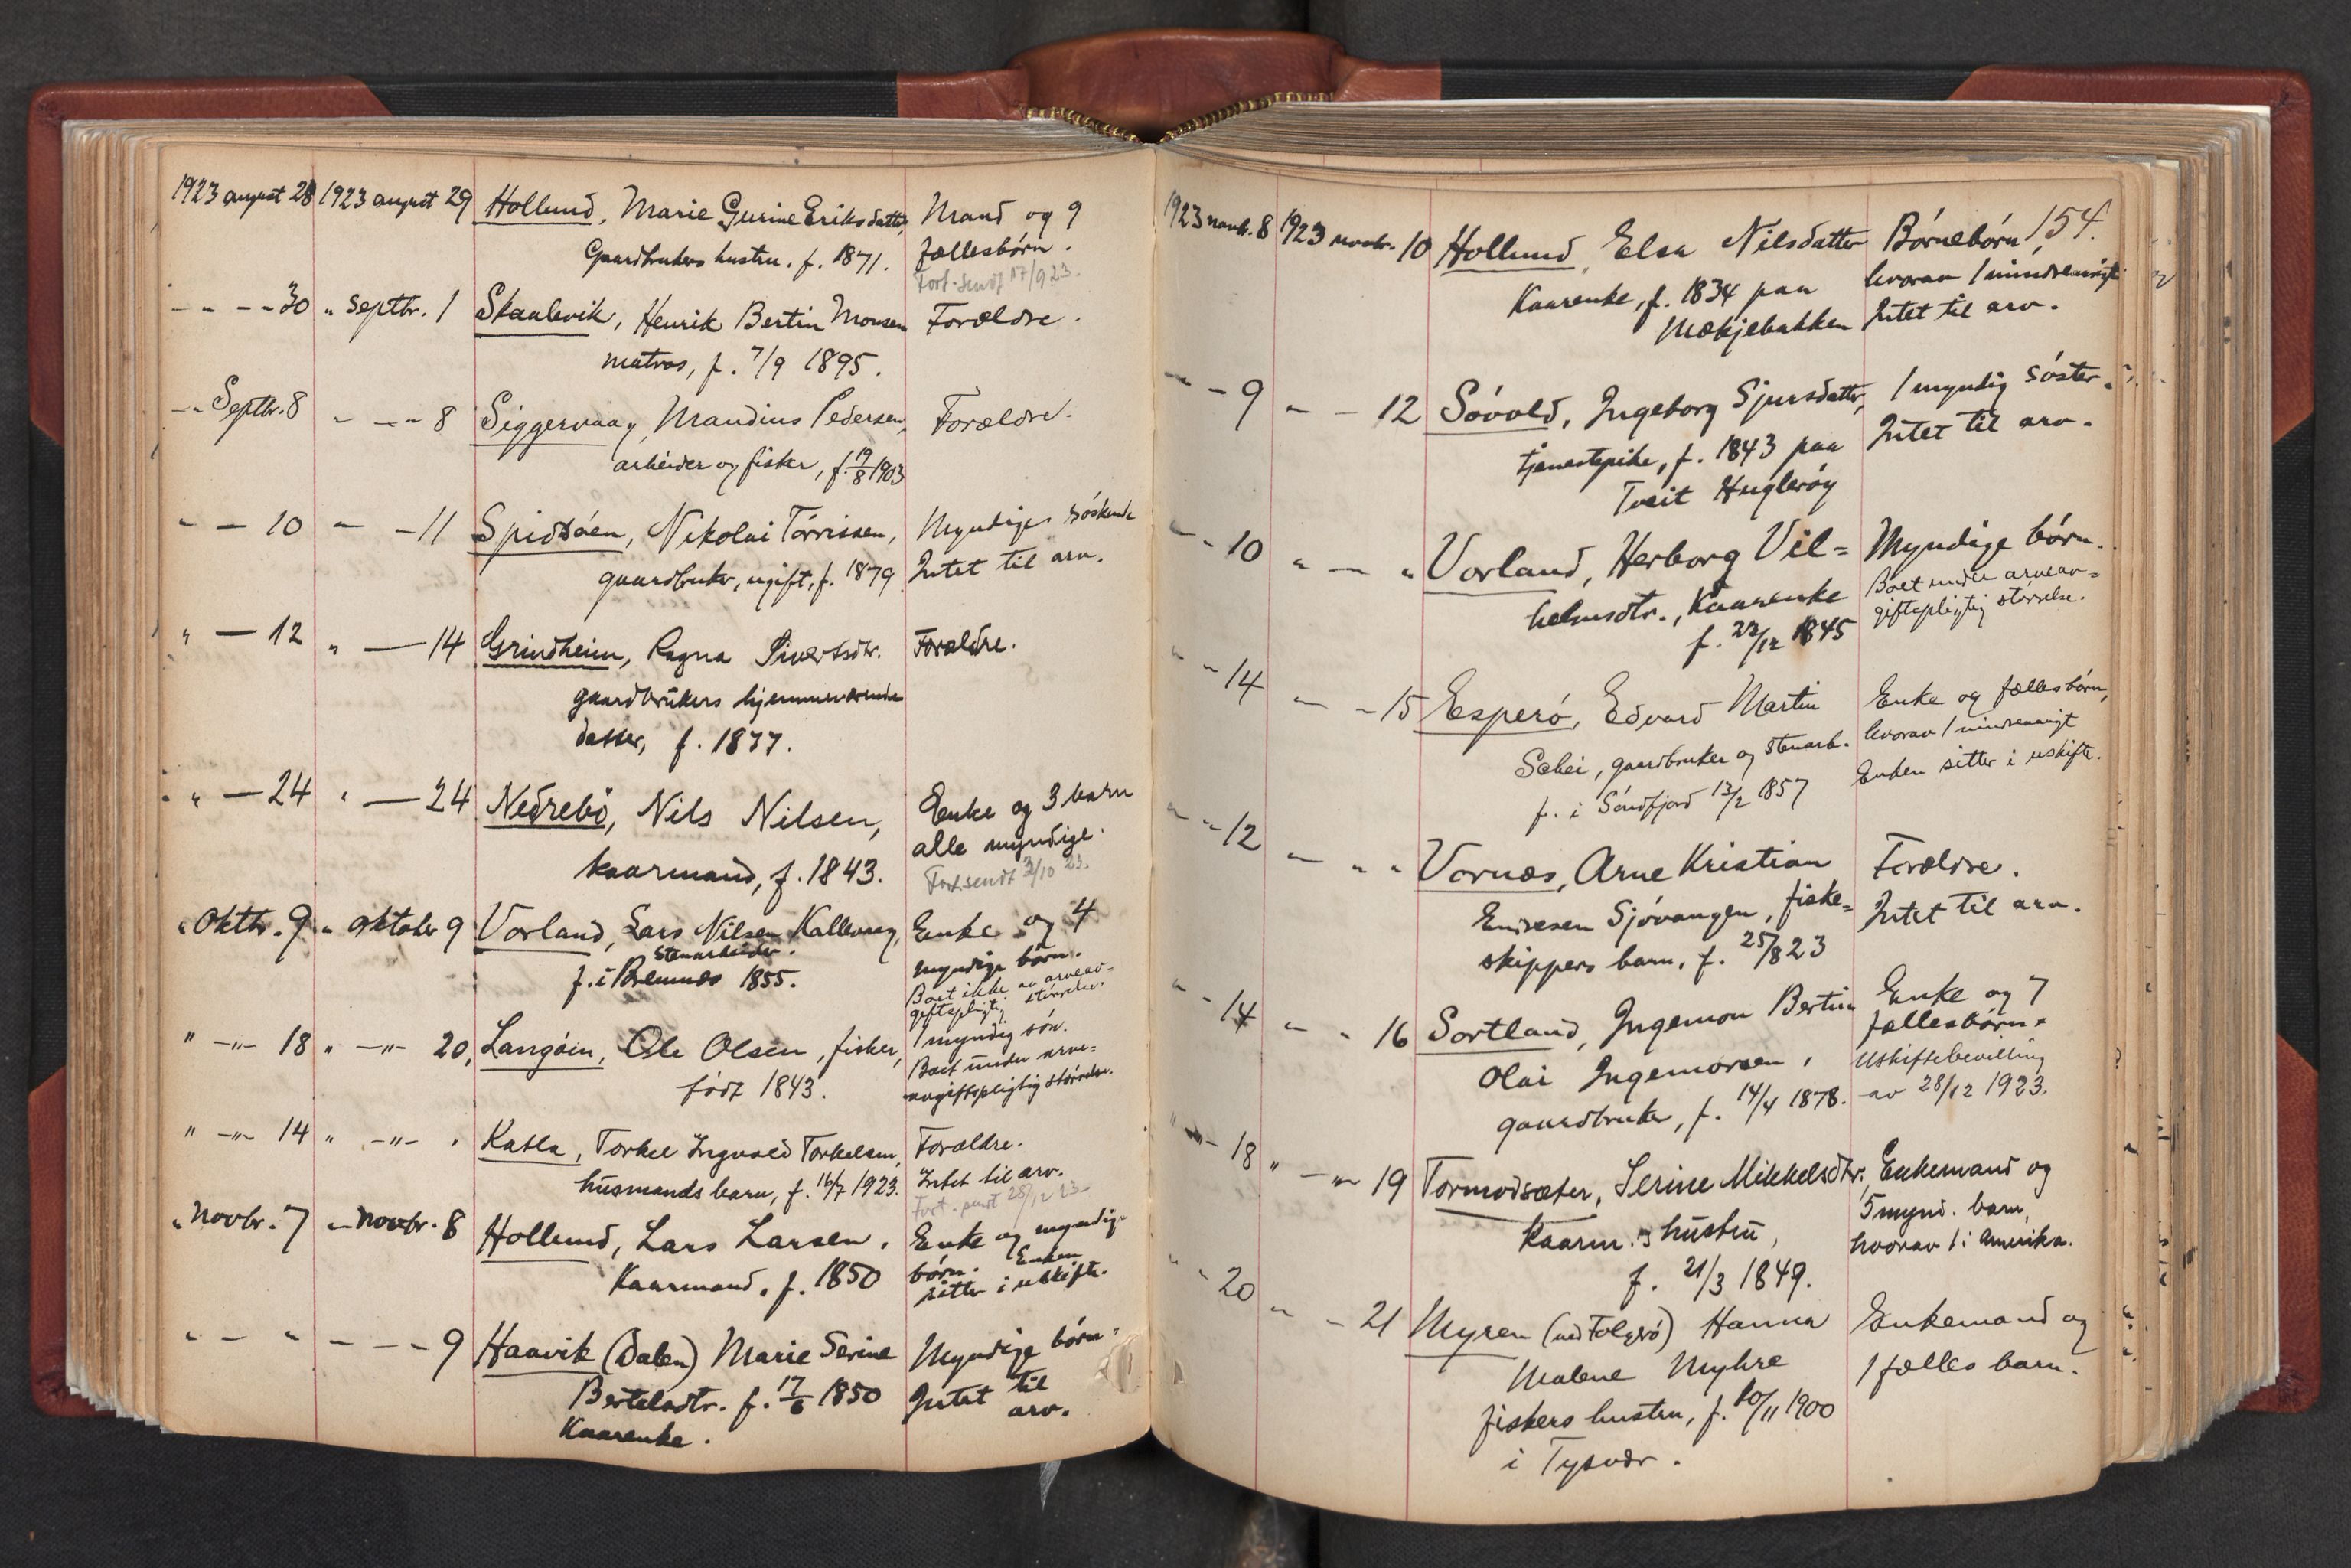 1923 august 28 1923 august 29 Hollund, Marie Gurine Eriksdatter, Mand og 9
Gaardbrukers hustru. f. 1871. fællesbörn.
Fort. sendt 17/9 23.
" - - 30 " Septbr. 1 Skaalevik, Henrik Bertin Monsen Forældre.
matros, f. 7/9 1895.
" Septbr. 8 " - " 8 Siggervaag, Mandius Pedersen, Forældre.
arbeider og fisker, f. 19/8 1903
" - 10 " - 11 Spidsöen, Nikolai Törrissen, Myndige söskende
gaardbruker, ugift, f. 1879 Intet til arv.
" - 12 " - 14 Grindheim, Ragna Sivertsdtr. Forældre.
gaardbrukers hjemmeværende
datter, f. 1877.
" - 24 " - 24 Nedrebö, Nils Nilsen, Enke og 3 barn
kaarmand, f. 1843. alle myndige.
Fort. sendt 3/10 23.
" Oktbr. 9 " oktober 9 Vorland, Lars Nilsen Kallevaag, Enke og 4
stenarbeider.
f. i Bremnes 1855. myndige börn.
Boet ikke av arveav-
giftspligtig störrelse.
" -"- 18 " -"- 20, Langöen, Ole Olsen, fisker, 1 myndig sön.
født 1843. Boet under arve=
avgiftspligtig störrelse.
" -"- 14 " -"- " Katla, Torkel Ingvald Torkelsen, Forældre.
husmands barn, f. 16/7 1923. Intet til arv.
Fort. sendt 28/12 23.
" Novbr. 7 " Novbr. 8 Hollund, Lars Larsen, Enke og myndige
Kaarmand, f. 1850 börn. Enken
sitter i uskifte.
" - " - - - 9 Haavik (Dalen) Marie Serine Myndige börn.
Bertelsdtr. f. 17/6 1850 Intet til
Kaarenke. arv.
154.
1923 novbr. 8 1923 novbr. 10 Hollund, Elsa Nilsdatter Börnebörn,
Kaarenke, f. 1834 paa hvorav 1 mindreaarigt
Mækjebakken Intet til arv.
" - 9 " - 12 Sövold, Ingeborg Sjursdatter, 1 myndig söster.
tjenestepike, f. 1843 paa Intet til arv.
Tveit Huglöy
" - 10 " - " Vorland, Herborg Vil= Myndige börn.
helmsdtr., Kaarenke Boet under arveav=
f. 22/12 1845 giftspligtig störrelse.
" - 14 " - 15 Esperö, Edvard Martin Enke og fællesbörn,
Schei, gaardbruker og stenarb. hvorav 1 mindreaarigt
f. i Söndfjord 13/2 1857 Enken sitter i uskifte.
" " 12 " - " Vornes, Arne Kristian Forældre.
Endresen Sjövangen, fiske= Intet til arv.
skippers barn, f. 25/8 23
" - 14 " - 16 Sortland, Ingemon Bertin Enke og 7
Olai Ingemonsen, fællesbörn.
gaardbruker, f. 14/4 1878. Uskiftebevilling
av 28/12 1923.
" -"- 18 " -"- 19 Tormodsæter, Serine Mikkelsdtr. Enkemand og
Kaarm.s hustru, 5 mynd. barn,
f. 21/3 1849. hvorav 1 i Amerika.
" - 20 " - 21 Myren (ved Folgerö) Hanna Enkemand og
Malene Myhre 1 fælles barn.
fiskers hustru, f. 10/11 1900
i Tysvær.